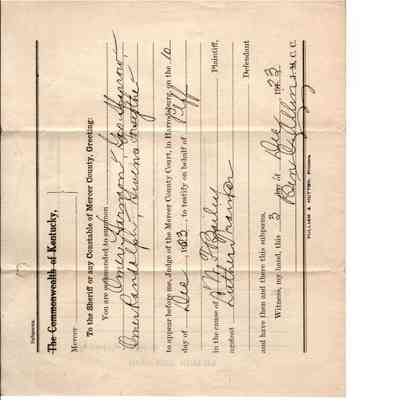 Subpoena.
The Commonwealth of Kentucky,
Mercer
To the Sheriff or any Constable of Mercer County, Greeting:
You are commanded to summon
Omer Harmon, Geo Sparrow,
Omer Randolph,
to appear before me, Judge of the Mercer County Court, in Harrodsburg, on the 10
day of Dec 1923, to testify on behalf of Plff
in the cause of Bailey Plaintiff,
against Luther Defendant
and have then and there this subpœna.
Witness, my hand, this 3 day of Dec 1923
Ben C Allin J. M. C. C.